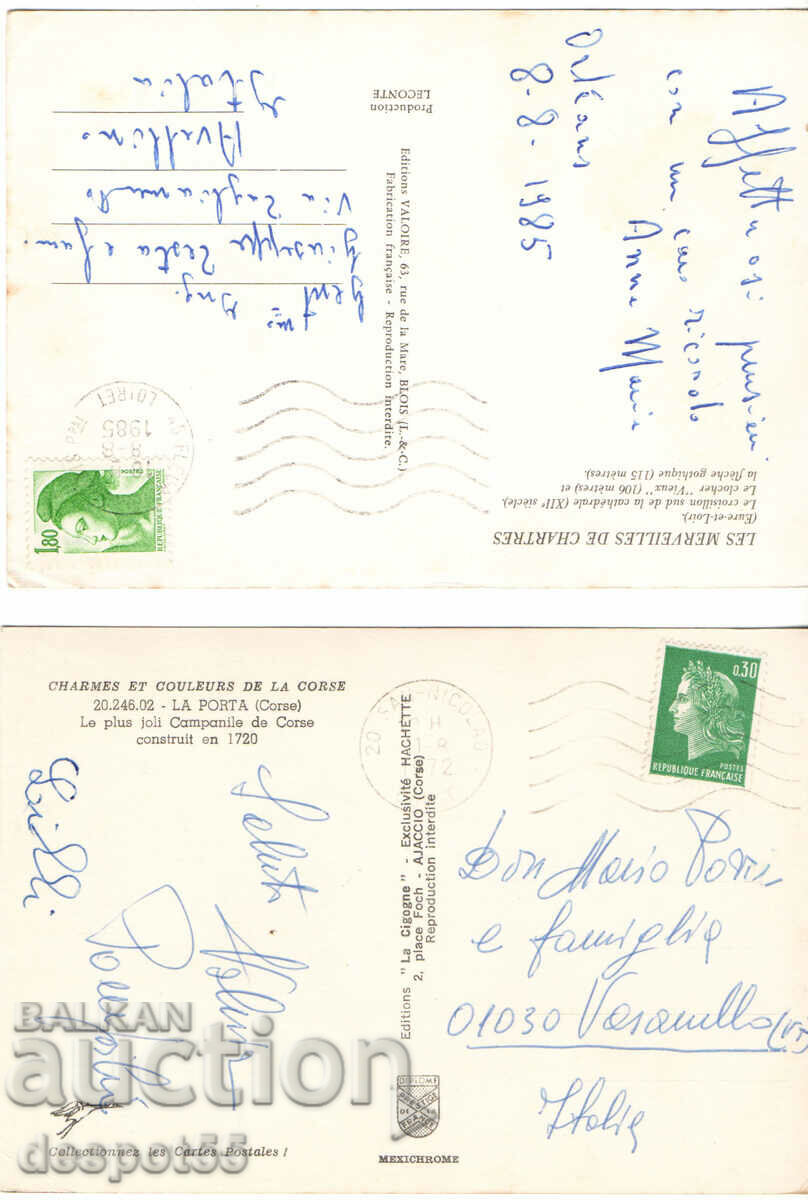 LES MERVEILLES DE CHARTRES
(Eure-et-Loir).
Le croisillon sud de la cathédrale (XIIe siècle).
Le clocher "Vieux" (106 mètres) et
la flèche gothique (115 mètres).
Affettuosi pensieri
con un caro ricordo
Anna Maria
Orléans
8-8-1985
Editions VALOIRE, 63, rue de la Mare, BLOIS (L.-&-C.)
Fabrication française - Reproduction interdite.
Production
LECONTE
1,80
REPUBLIQUE FRANÇAISE
POSTES
8-8
1985
LOIRET
Gent.mo Ing.
Giuseppe Testa e fam.
Via Tagliamento
Avellino
Italia
CHARMES ET COULEURS DE LA CORSE
20.246.02 - LA PORTA (Corse)
Le plus joli Campanile de Corse
construit en 1720
Saluti
Lilli
Editions "La Cigogne" - Exclusivité HACHETTE
2, place Foch - AJACCIO (Corse)
Reproduction interdite
0,30
POSTES
REPUBLIQUE FRANÇAISE
Don Mario
e famiglia
01030 Vasanello (VT)
Italia
DIPLOME
PRESTIGE
DE LA
FRANCE
MEXICHROME
Collectionnez les Cartes Postales !
BALKAN
auction
despot55